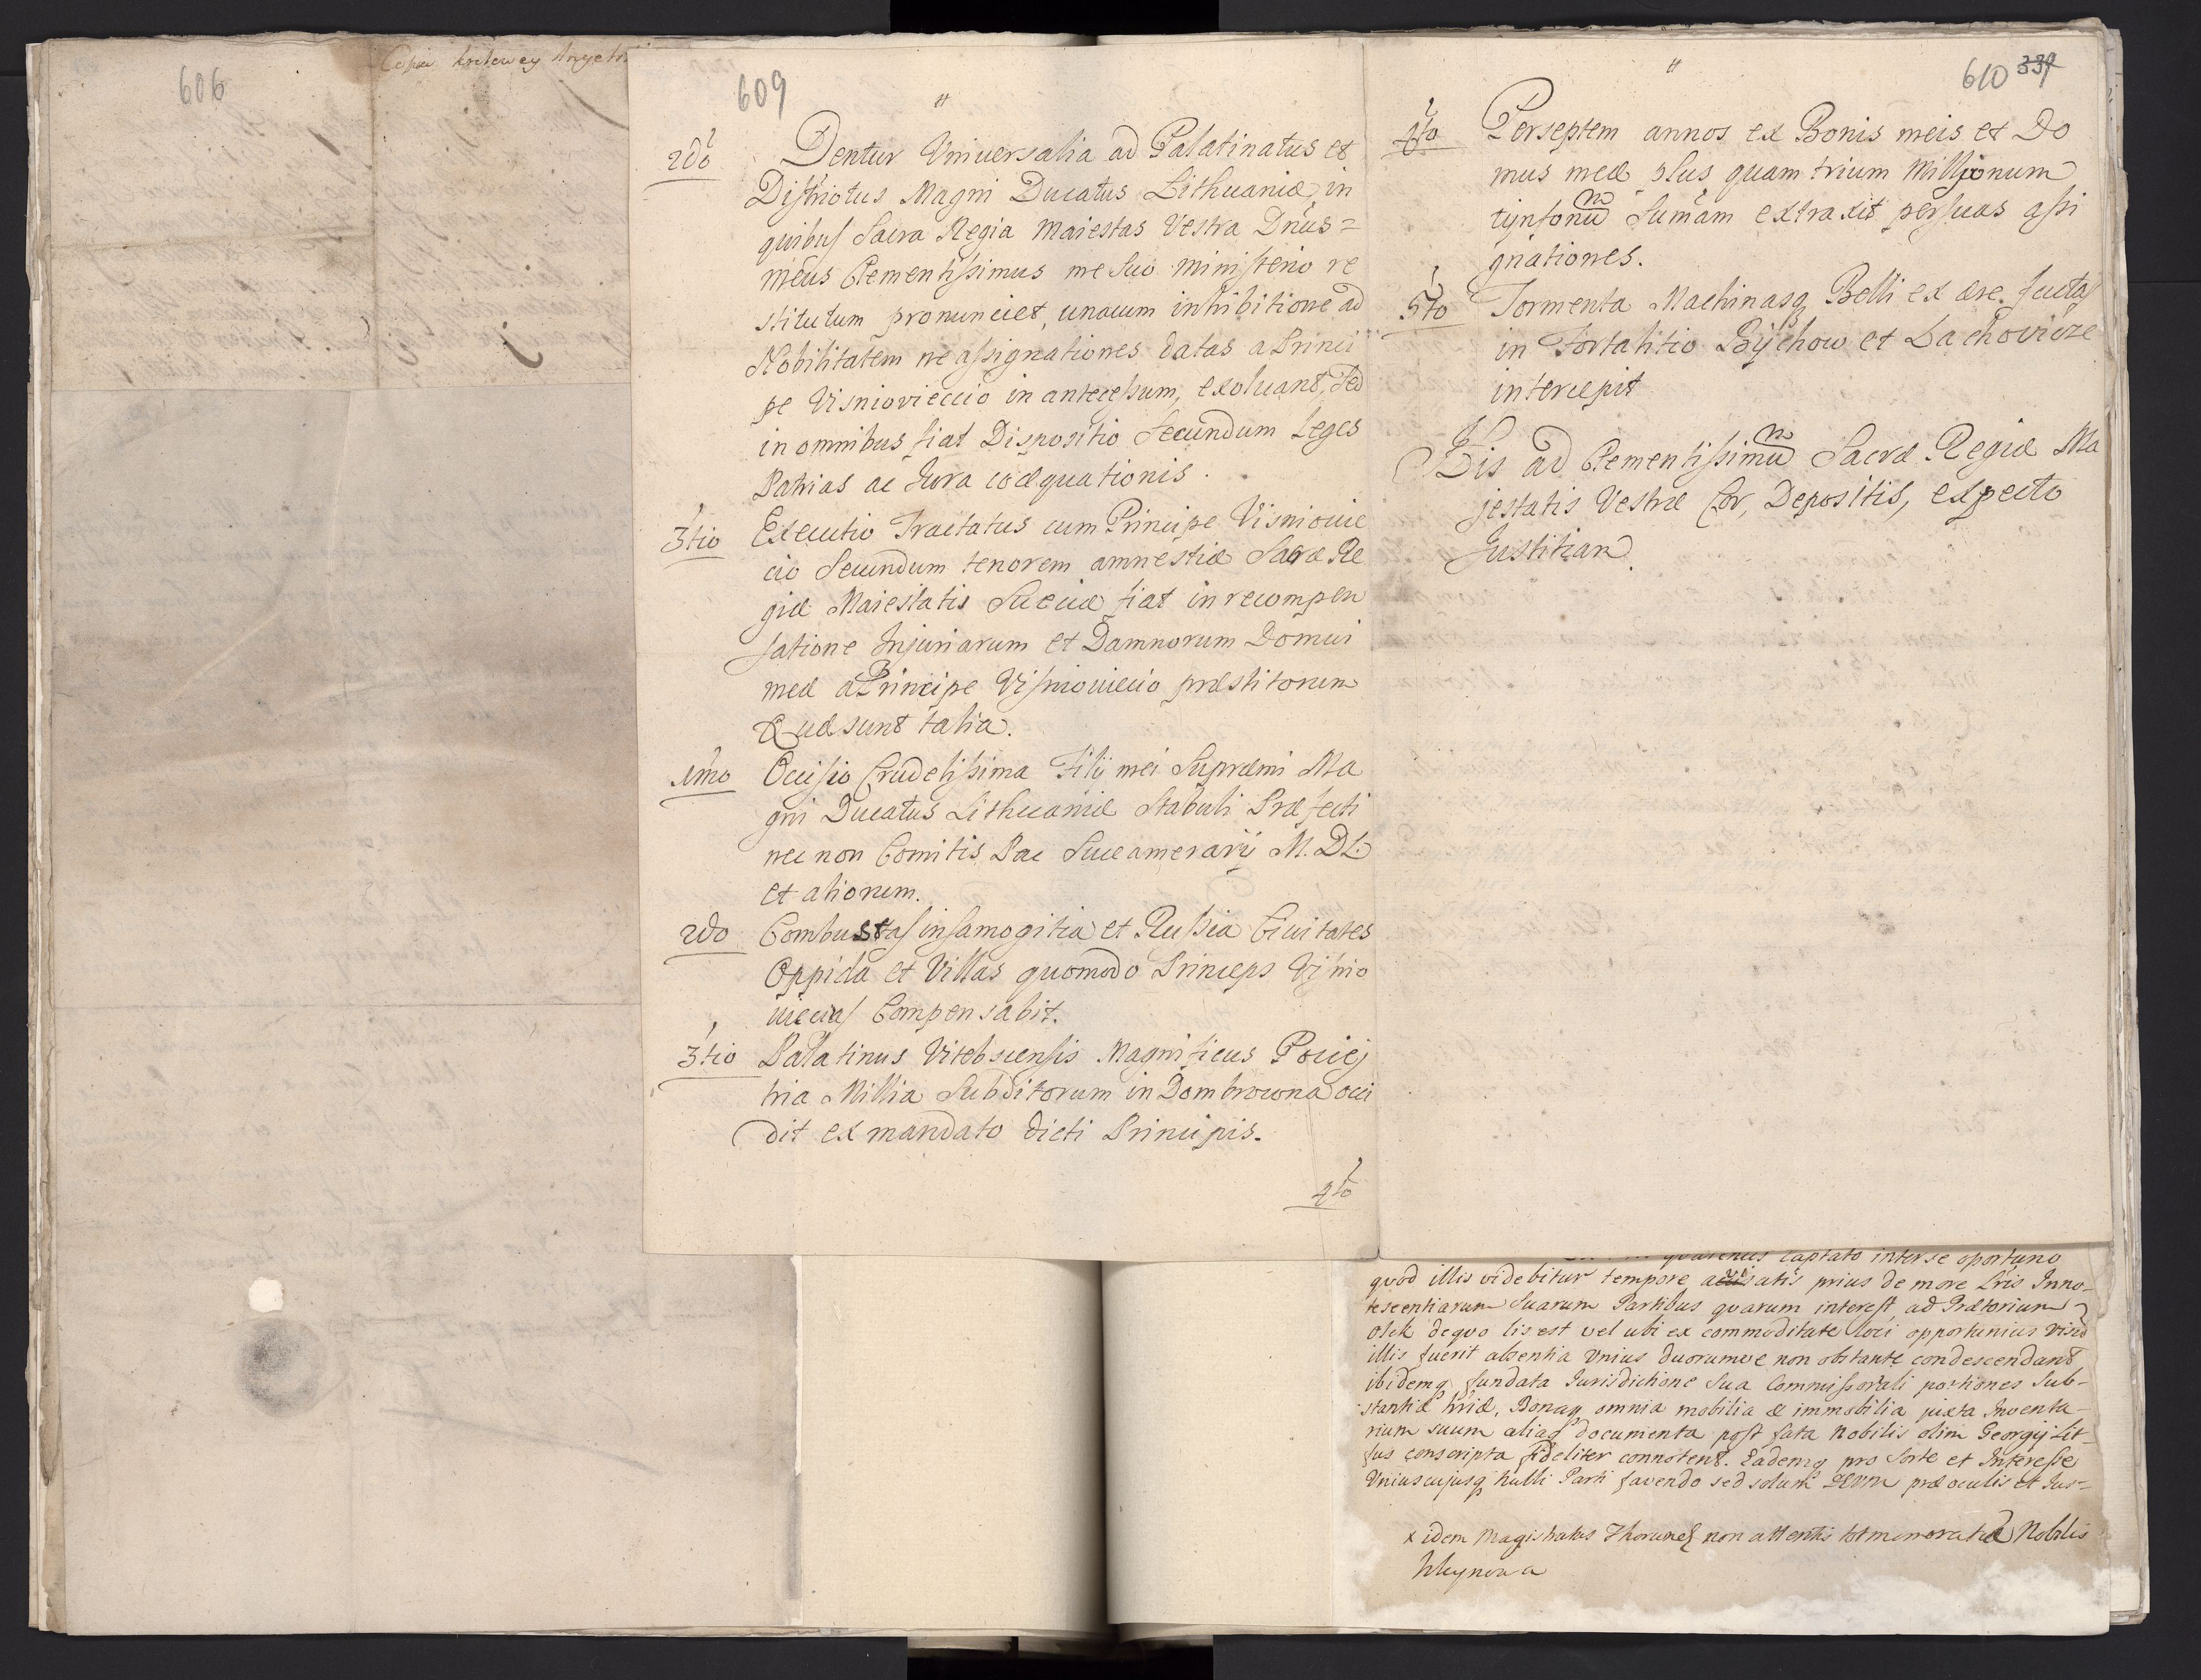 606
609
2do Dentur Vniuersalia ad Palatinatus et
Districtus Magni Ducatus Lithuaniæ, in
quibus Sacra Regia Maiestas Vestra Dnus=
meus Clementissimus me Suo ministerio re
stitutum pronunciet, unacum inhibitione ad
Nobilitatem ne assignationes datas a Princi
pe Visniovieccio in antecessum, exoluant, Sed
in omnibus fiat Dispositio Secundum Leges
Patrias ac Iura coæquationis.
3tio Executio Tractatus cum Principe Visniouie
cio Secundum tenorem amnestiæ Sacræ Re
giæ Maiestatis Sueciæ fiat in recompen
satione Injuriarum et Damnorum Domui
meæ a Principe Visniouiecio præstitorum
Quæ sunt talia.
1mo Occisio Crudelissima Filij mei Supræmi Ma
gni Ducatus Lithuaniæ Stabuli Præfecti
nec non Comitis Pac Succamerarij M. D L.
et aliorum.
2do Combustas in Samogitia et Russia Ciuitates
Oppida et Villas quomodo Princeps Visnio
uiecius Compensabit.
3tio Palatinus Vitebscensis Magnificus Pociej
tria Millia Subditorum in Dombrowna occi
dit ex mandato dicti Principis.
4to
610 339
4to Per septem annos ex Bonis meis et Do
mus meæ plus quam trium Millionum
tynfonum Sumam extraxit per suas assi
gnationes.
5to Tormenta Machinasq Belli ex ære fuctas
in Fortalitio Bÿchow et Lachovicze
intercepit
His ad Clementissimum Sacræ Regiæ Ma
jestatis Vestræ Cor, Depositis, expecto
Justitiam.
captato inter se oportuno
quod illis videbitur tempore prius de more Lris Inno-
tescentiarum Suarum Partibus quarum interest ad Prætorium
de quo lis est vel ubi ex commoditate loci opportunius visum
illis fuerit absentia Vnius duorumve non obstante condescendant
ibidemq fundata Iurisdictione Sua Commissoriali portiones Sub-
stantiæ Bonaq omnia mobilia & immobilia juxta Inventa-
rium suum aliaq documenta post fata Nobilis olim Georgij Lit-
fus conscripta fideliter connotent. Eademq pro Sorte et Interesse
Vniuscujusq nulli Parti favendo sed solum præ oculis et Jus-
x idem Magistratus non attentis Nobilis